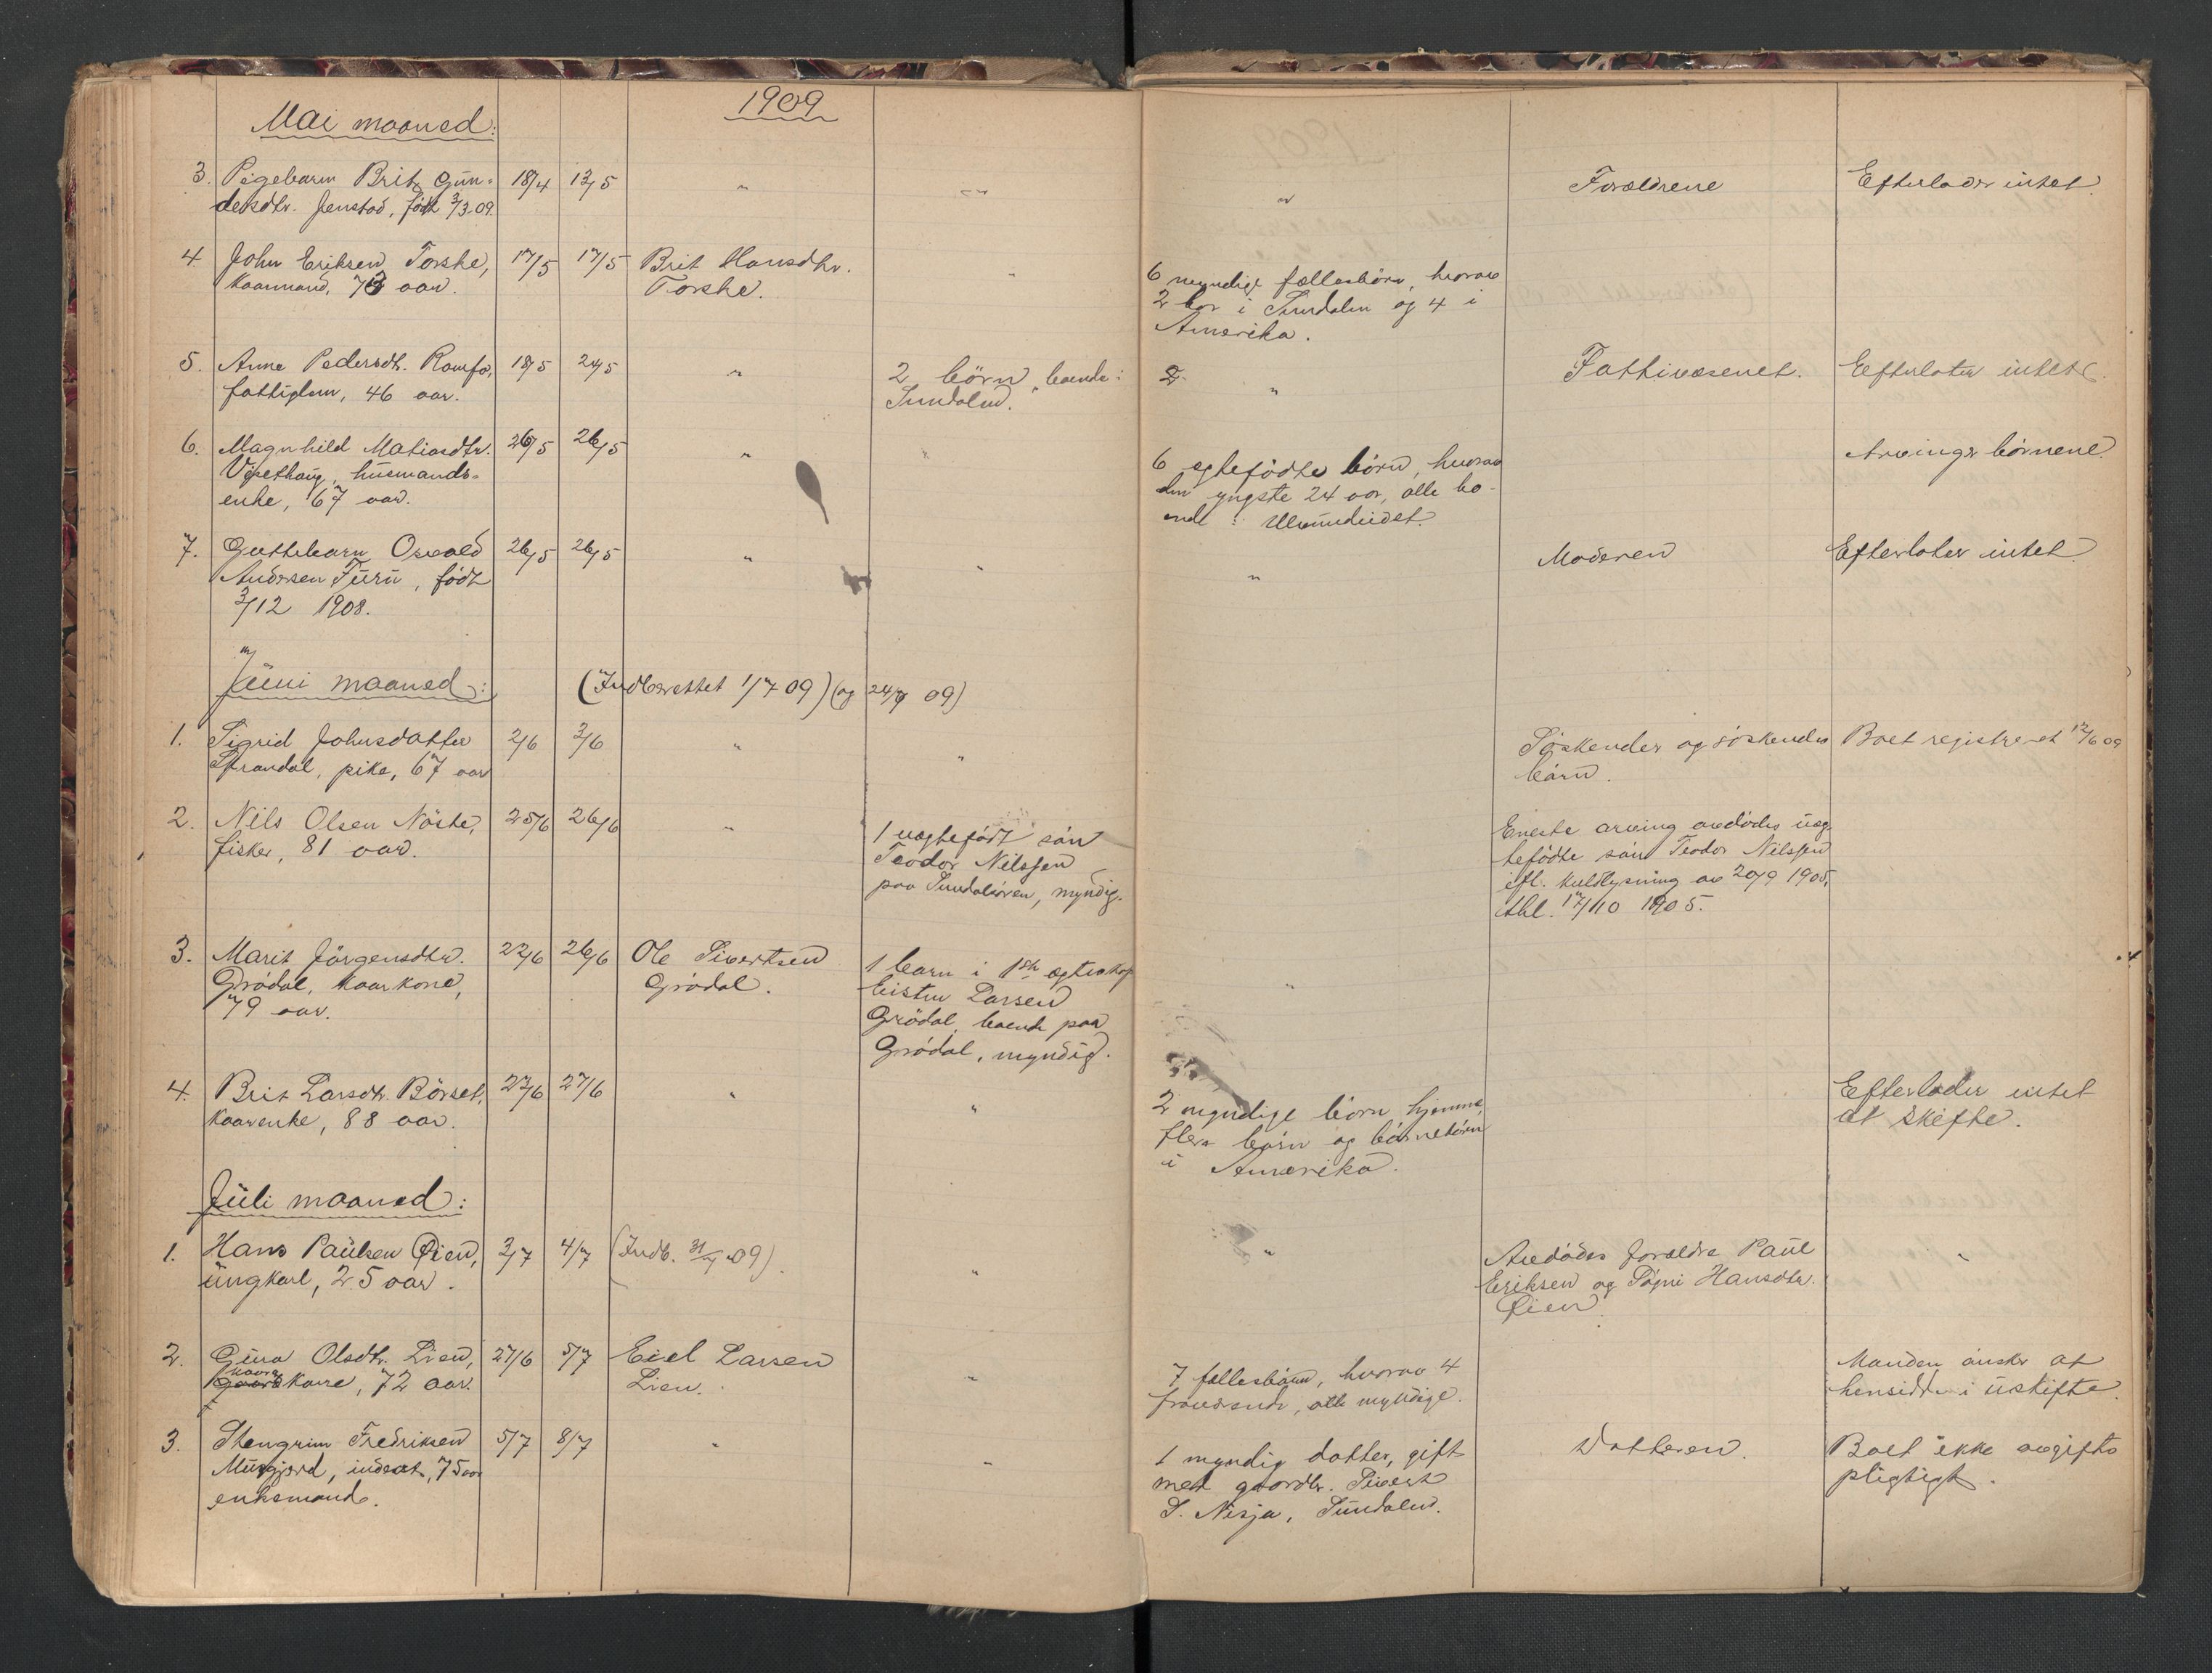 1909
Mai maaned:
3. Pigebarn Brit Gun- 18/4 13/5 " " " Forældrene Efterlader intet.
dersdtr. Jenstad, född 3/3-09.
4. John Eriksen Torske, 17/5 17/5 Brit Hansdtr. " 6 myndige fællesbörn, hvorav
kaarmand, 73 aar. Torske. 2 bor i Sundalen og 4 i
Amerika.
5. Anne Pedersdtr. Romfo, 18/5 24/5 " 2 börn, boende i " Fattivæsenet. Efterlater intet.
fattiglem, 46 aar. Sundalen.
6. Magnhild Matiasdtr. 26/5 26/5 " " 6 egtefödte börn, hvorav Arvinger börnene.
husmands- den yngste 24 aar, alle bo-
enke, 67 aar. ende i Ulvundeidet.
7. Guttebarn Osvald 26/5 26/5 " " " Moderen Efterlater intet.
Andersen Furu, född
3/12 1908.
Juni maaned: (Indberettet 1/7 09) (og 24/7 09)
1. Sigrid Johnsdatter 2/6 3/6 " " Söskender og söskende Boet registreret 12/6 09
pike, 67 aar börn.
2. Nils Olsen Nöste, 25/6 26/6 " 1 uegtefödt sön Eneste arving avdödes ueg-
fisker, 81 aar. Teodor Nilssen tefödte sön Teodor Nilssen
paa Sundalsören, myndig. ifl. kuldlysning av 20/9 1905,
thl. 17/10 1905.
3. Marit Jörgensdtr. 22/6 26/6 Ole Sivertsen 1 barn i 1ste egteskap "
Grödal, kaarkone, Grödal. Eisten Larsen
79 aar. Grödal, boende paa
Grödal, myndig.
4. Brit Larsdtr. Börset, 22/6 27/6 " " 2 myndige börn hjemme, Efterlader intet
kaarenke, 88 aar. flere börn og börnebörn at skifte.
i Amerika.
Juli maaned:
1. Hans Paulsen Øien, 3/7 4/7 (Indb. 31/7 09). " " Avdödes forældre Paul "
ungkarl, 25 aar. Eriksen og Hansdtr.
Øien.
2. Guru Olsdtr. Lien, 27/6 5/7 Eiel Larsen " 7 fællesbörn, hvorav 4 Manden önsker at
kaar kone, 72 aar. Lien. fraværende, alle myndige. hensidde i uskifte.
3. Stengrim Fredriksen 5/7 8/7 " " 1 myndig datter, gift Datteren. Boet ikke avgifts
Musgjerd, inderst, 75 aar med gaardbr. Sivert pligtigt.
enkemand. S. Nisja, Sundalen.